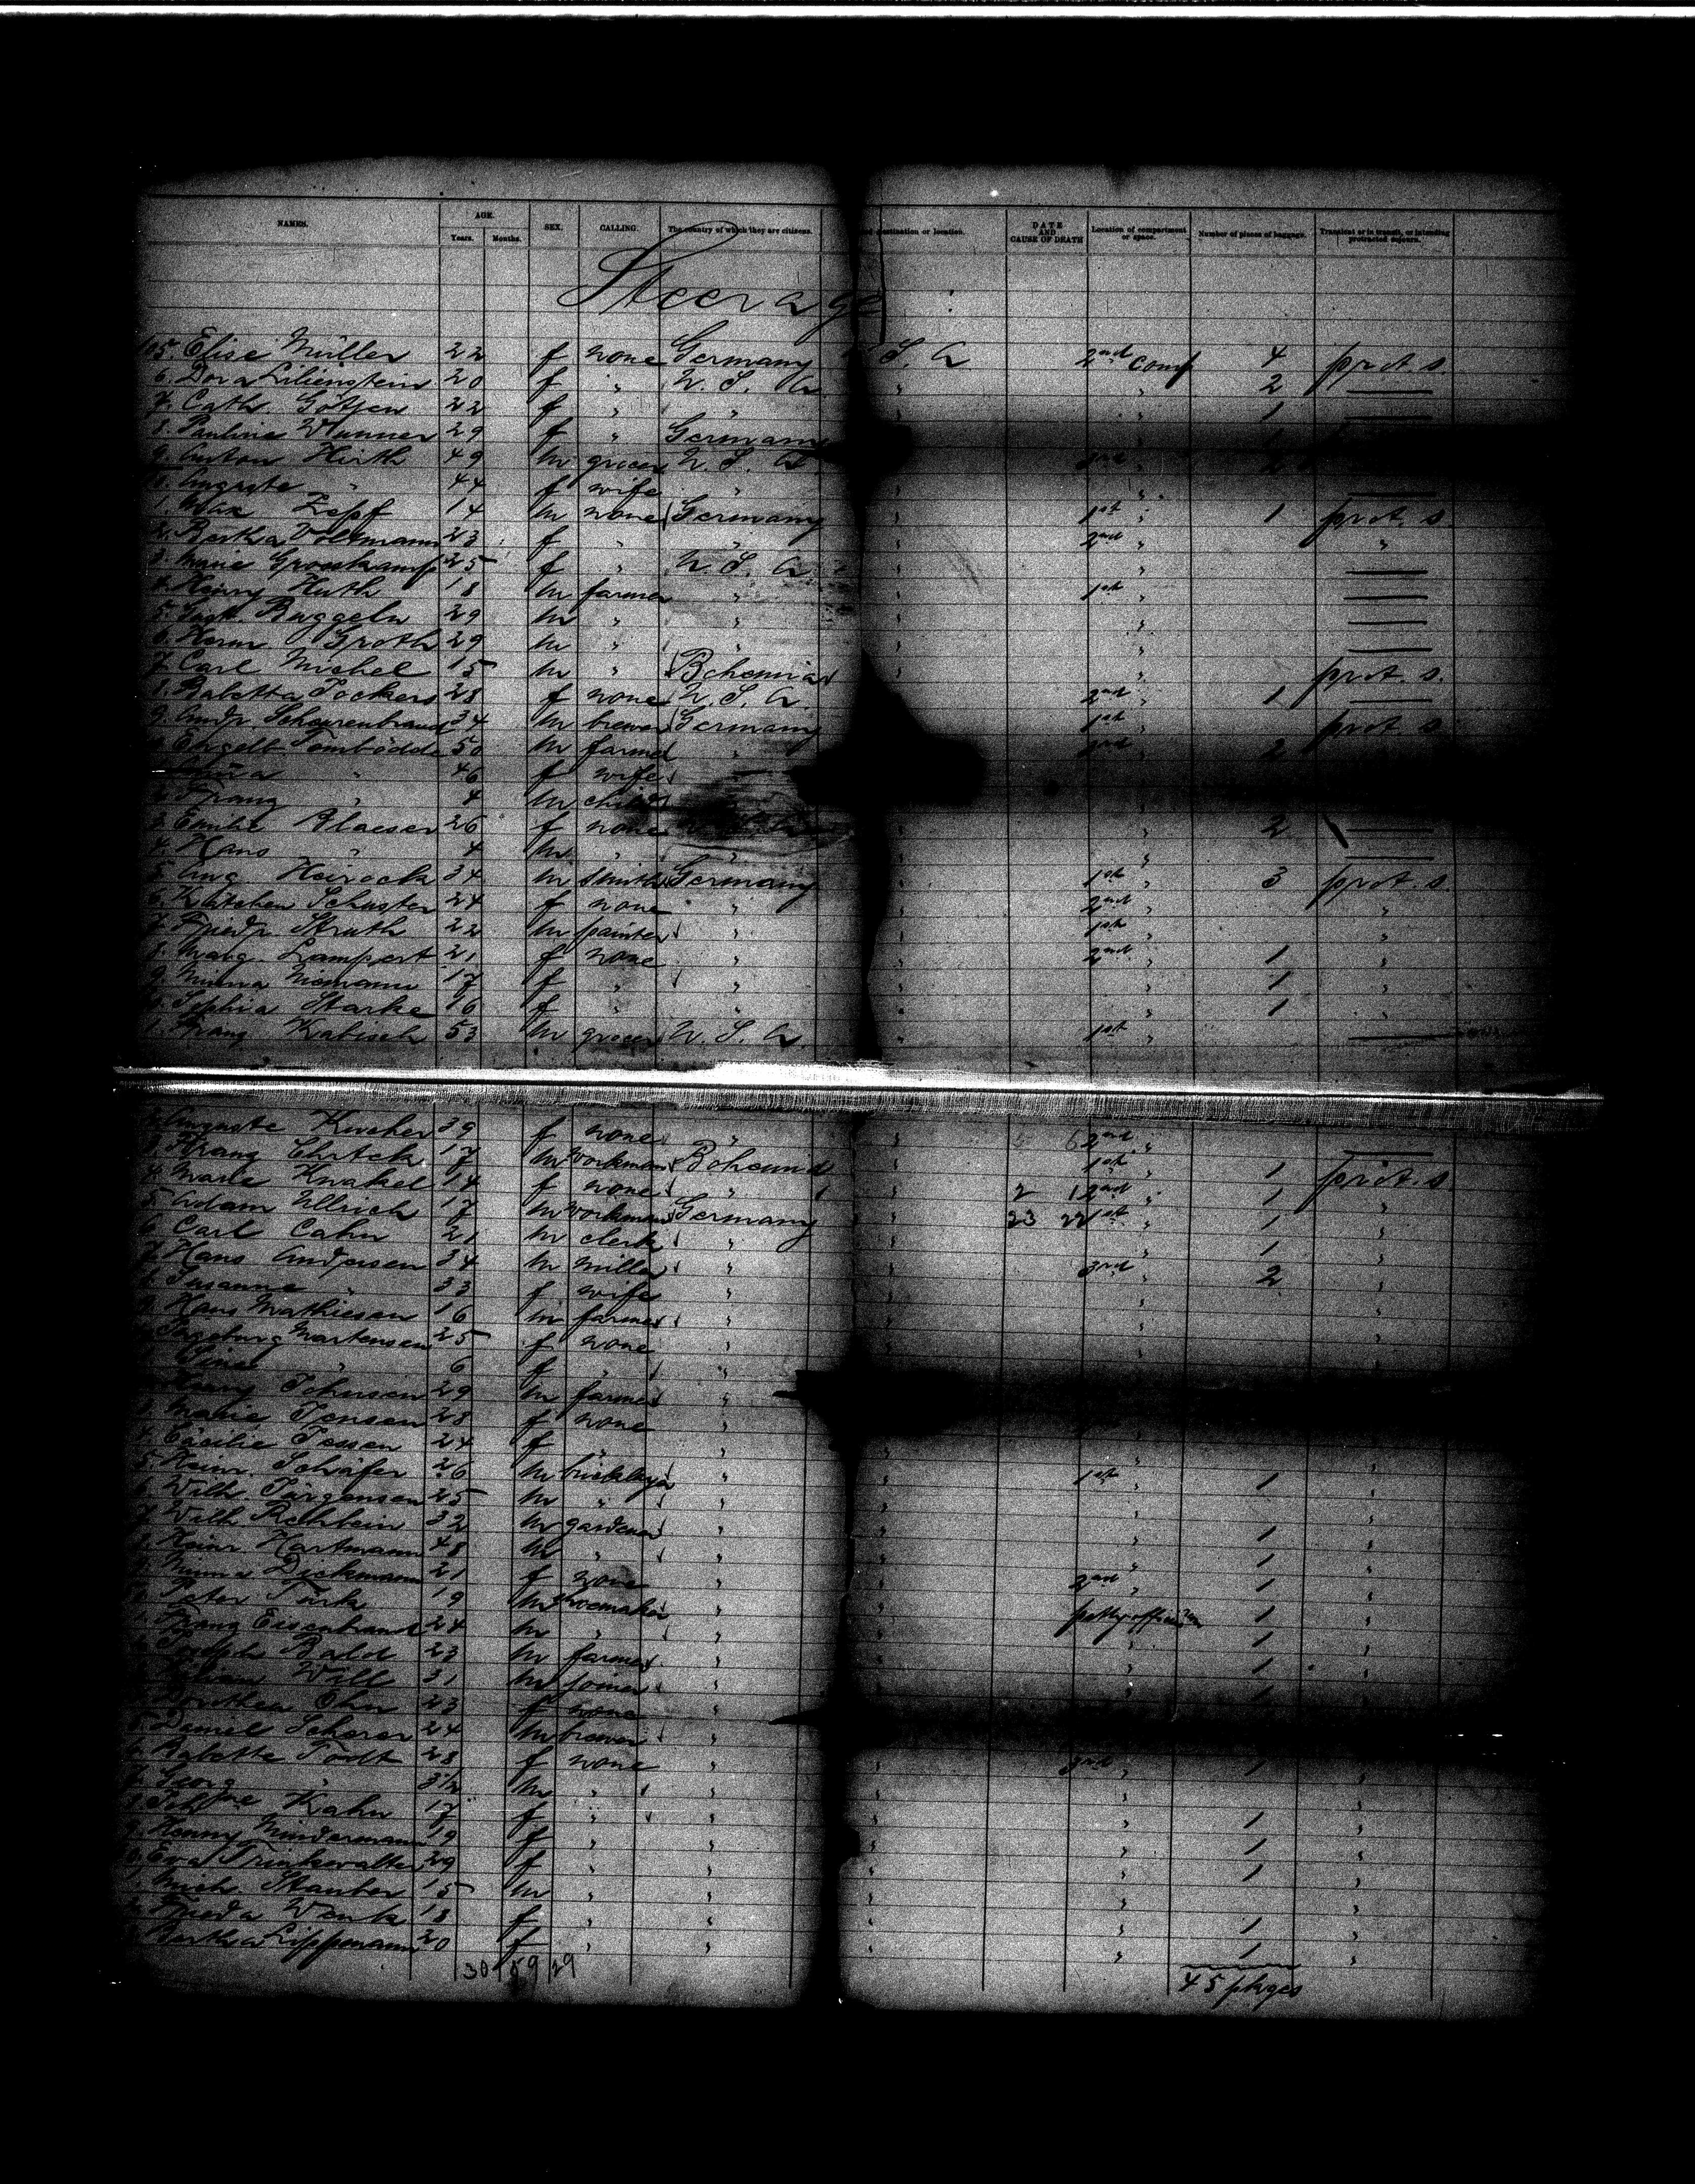 NAMES. AGE. SEX. CALLING. The country of which they are citizens. destination or location. DATE AND CAUSE OF DEATH Location of compartment or space. Number of pieces of baggage. Transient or in transit, or intending protracted sojourn.
Years. Months.
Steerage
Elise Müller 22 f none Germany U. S. A 2nd comp 4 prot. s.
6. Dora Lilienstein 20 f " U. S. A. " " 2
7. Cath. Götjen 22 f " " " " 1
8. Pauline Wanner 29 f " Germany
9. Anton Hirth 49 m grocer U. S. A
Auguste " 44 f wife " " "
1. Max Zepf 14 m none Germany " 1st " 1 prot. s.
2. Bertha Volkmann 23 f " " " 2nd " "
3. Marie Grosskamp 25 f " U. S. A. " "
4. Henry Huth 18 m farmer " " 1st "
5. Buggeln 29 m " " " "
6. Herm Groth 29 m " " " "
7. Carl Michel 15 m " Bohemia " " prot. s.
8. Babetta Tockers 28 f none U. S. A. 2nd " 1
9. Andr. Scheurenbrand 34 m brewer Germany 1st " prot. s.
Engelb. Tombödde 50 m farmer " 2
" 46 f wife
2. Franz " 4 m child
3. Emilie Blaeser 26 f none " " 2
4. Hans " 4 m " " " "
5. Aug. 34 m smith Germany " 1st " 3 prot. s.
6. Kätchen Schuster 24 f none " " 2nd " "
7. Friedr. Struth 22 m painter " " 1st " "
8. Marg. Lampert 21 f none " " 2nd " 1 "
9. Minna Niemann 17 f " " " " 1 "
Sophia Starke 16 f " " " " 1 "
1. Franz Kabisch 53 m grocer U. S. A " 1st "
Auguste Kircher 39 f none " " 2nd "
3. Franz 17 m workman Bohemia " 1st " 1 prot. s.
4. Marie 14 f none " " 2nd " 1 "
5. Adam Ullrich 17 m workman Germany " 23 22 1st " 1 "
6. Carl Cahn 21 m clerk " " " 1 "
7. Hans Andresen 34 m miller " " 3rd " 2 "
8. Susanne " 33 f wife " " " "
9. Hans Mathiesen 16 m farmer " " " "
Ingeburg Martensen 25 f none " " " "
1. " 6 f " "
29 m farmer "
3. Marie Jensen 28 f none "
4. Cäcilie Jessen 24 f " " " " "
5. Heinr. Schäfer 26 m bricklayer " " 1st " 1 "
6. Wilh. Jürgensen 25 m " " " " "
7. Wilh. Rehbein 32 m gardener " " " 1 "
8. Heinr. Hartmann 48 m " " " " 1 "
9. Minna Dickmann 21 f none " " 2nd " 1 "
Peter Türk 19 m shoemaker " " petty officer 1 "
1. Franz Eisenbrand 24 m " " " " 1 "
2. Joseph Bald 23 m farmer " " " 1 "
Will 31 m joiner " " " 1 "
Dorothea Ohm 23 f none "
5. Daniel Scherer 24 m brewer "
6. Babette Todt 28 f none " " 3rd " 1 "
7. Georg " 3½ m " " " " "
8. Kahn 17 f " " " " 1 "
9. Henny Mindermann 19 f " " " " 1 "
Eva Trinkwalter 29 f " " " " 1 "
1. Mich. Stauber 15 m " " " " "
2. Frieda Wenk 18 f " " " " 1 "
3. Bertha Lippmann 20 f " " " " 1 "
30 59 29 45 pkges